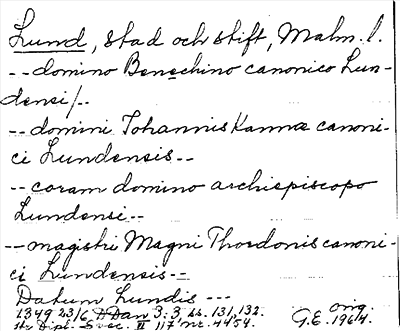 Lund, stad och stift, Malm. l.
-- domino Benechino canonico Lun-
densi/--
-- domini Johannis Kannæ canoni-
ci Lundensis --
-- coram domino archiepiscopo
Lundensi --
-- magistri Magni Thordonis canoni-
ci Lundensis --
Datum Lundis ---
1349 23/6 Dan 3:3 ss. 131, 132. Orig.
Dipl. Svec. II 117 nr. 4454. G.E. 1964.